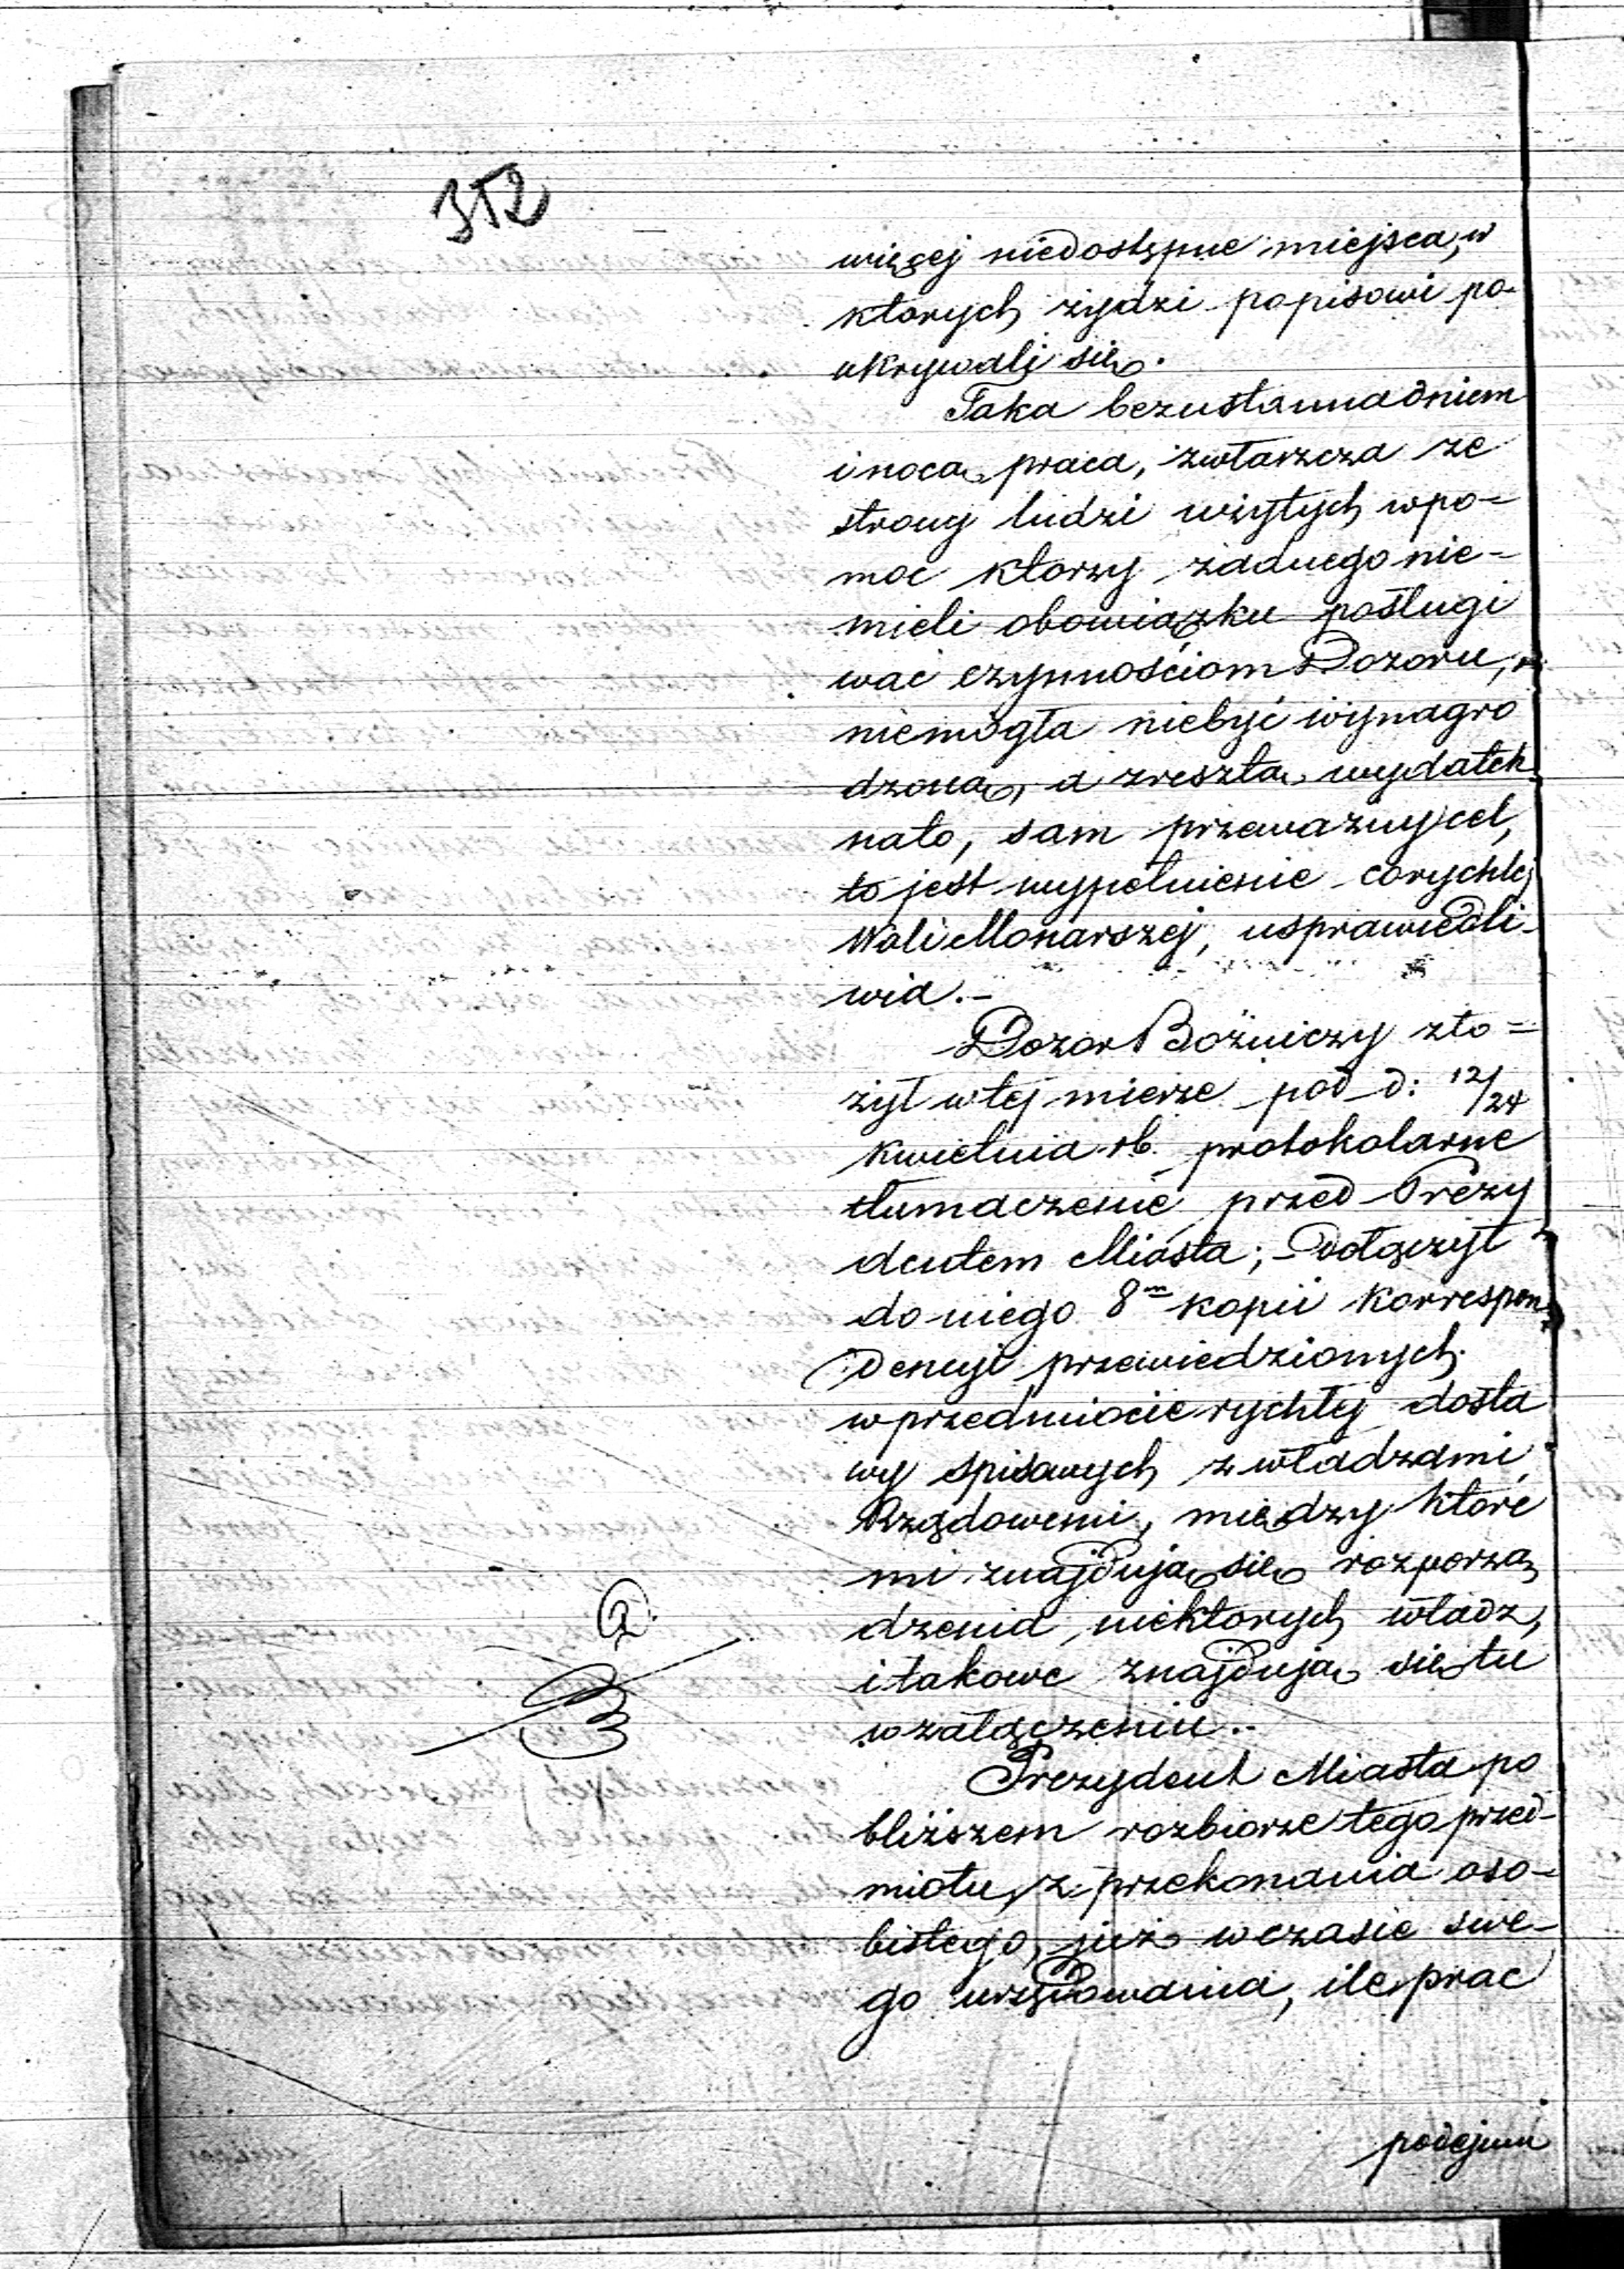 352
więcej niedostępne miejsca, w
ktorych żydzi popisowi po-
ukrywali się.
Taka bezustanna dniem
i nocą praca, zwłaszcza ze
strony ludzi użytych w po-
moc ktorzy żadnego nie-
mieli obowiązku posługi
wać czynnościom Dozoru,
niemogła niebyć wynagro
dzoną, a zresztą wydatek
nato, sam przeważny cel,
to jest wypełnienie corychlej
Woli Monarszej, usprawiedli-
wia.-
Dozor Bożniczy zło=
żył w tej mierze pod d: 12/24
Kwietnia rb. protokolarne
tłumaczenie przed Prezy
dentem Miasta; Dołączył
do niego 8m kopii Korrespon
dencyi przewiedzionych
w przedmiocie rychłej dosta
wy spisowych z władzami
Rządowemi, między które
mi znajdują się rozporzą
dzenia niektorych władz,
i takowe znajdują się tu
w załączeniu.-
Prezydent Miasta po
bliższem rozbiorze tego przed-
miotu, z przekonania oso-
bistego, już w czasie swe-
go urzędowania, ile prac
podejmu